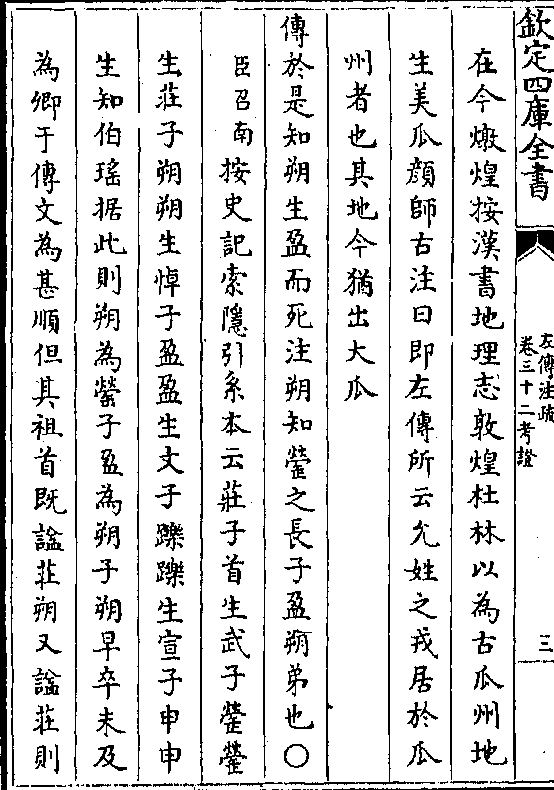 欽定四庫全書
左傳注疏
卷三十二考證
三
在今燉煌按漢書地理志敦煌杜林以為古瓜州地
生美瓜顔師古注曰即左傳所云允姓之戎居於瓜
州者也其地今猶出大瓜
傳於是知朔生盈而死注朔知罃之長子盈朔弟也○
臣召南按史記索隱引系本云莊子首生武子罃罃
生莊子朔朔生悼子盈盈生文子躒躒生宣子申申
生知伯瑤据此則朔為罃子盈為朔子朔早卒未及
為卿于傳文為甚順但其祖首既諡莊朔又諡莊則